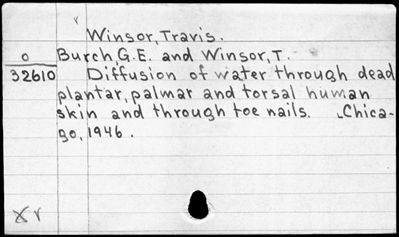 Winsor, Travis.
O
Burch, G.E. and Winsor, T.
32610
Diffusion of water through dead
plantar, palmar and torsal human
skin and through toe nails. Chica-
go, 1946.